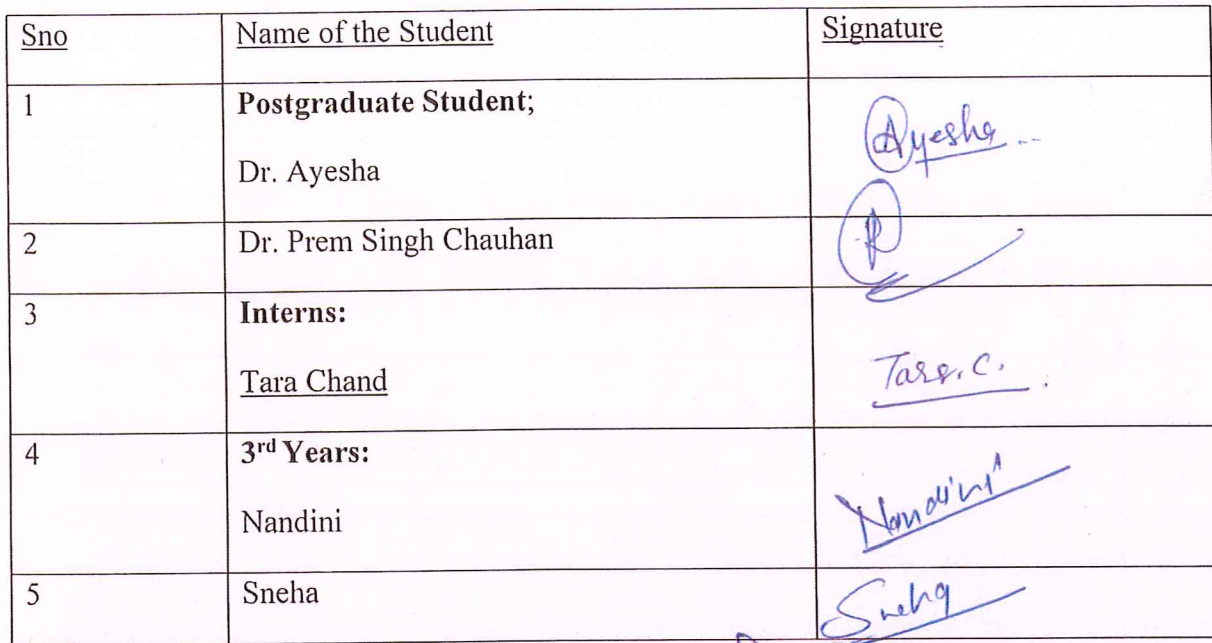 Sno Name of the Student Signature
1 Postgraduate Student;
Dr. Ayesha Ayesha
2 Dr. Prem Singh Chauhan
3 Interns:
Tara Chand Tara. C.
4 3rd Years:
Nandini Nandini
5 Sneha Sneha